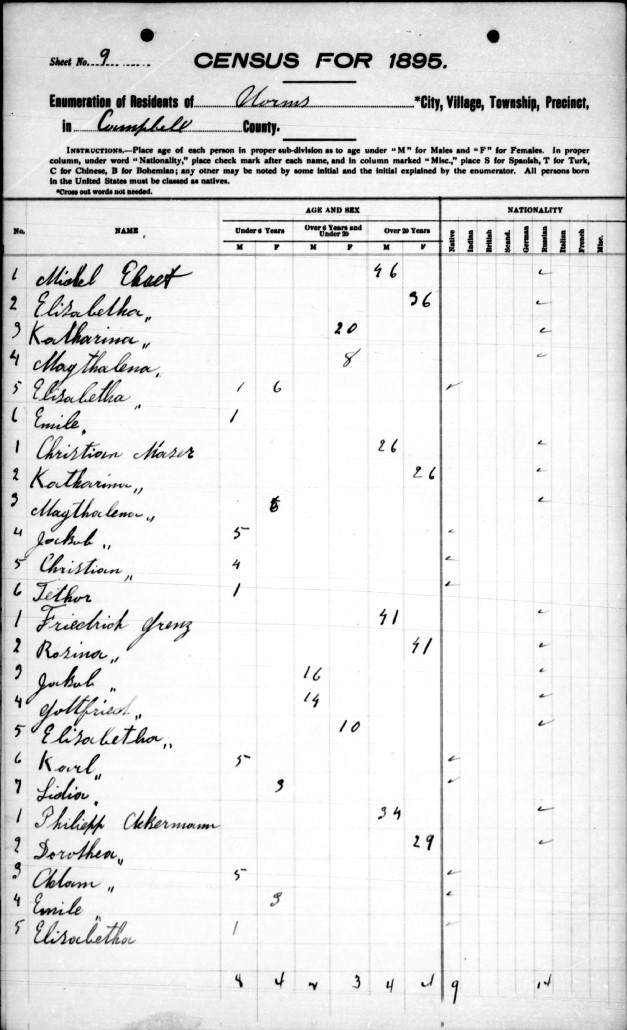 Sheet No. 9
CENSUS FOR 1895.
Enumeration of Residents of Worms *City, Village, Township, Precinct,
in Campbell County.
INSTRUCTIONS.—Place age of each person in proper sub-division as to age under "M" for Males and "F" for Females. In proper
column, under word "Nationality," place check mark after each name, and in column marked "Misc.," place S for Spanish, T for Turk,
C for Chinese, B for Bohemian; any other may be noted by some initial and the initial explained by the enumerator. All persons born
in the United States must be classed as natives.
*Cross out words not needed.
AGE AND SEX NATIONALITY
No. NAME Under 6 Years Over 6 Years and Under 20 Over 20 Years Native Indian British Scand. German Russian Italian French Misc.
M F M F M F
1 Michel 46 ✓
2 Elisabetha " 36 ✓
3 Katharina " 20 ✓
4 Magthalena " 8 ✓
5 Elisabetha " 1 6 ✓
6 Emile " 1
1 Christian Maser 26 ✓
2 Katharina " 26 ✓
3 Magthalena " 6 ✓
4 Jackob " 5 ✓
5 Christian " 4 ✓
6 1 ✓
1 Friedrich Grenz 41 ✓
2 Rosina " 41 ✓
3 Jakob " 16 ✓
4 Gottfried " 14 ✓
5 Elisabetha " 10 ✓
6 Karl " 5 ✓
7 Lidia " 3 ✓
1 Philipp Ackermann 34 ✓
2 Dorothea " 29 ✓
3 Adam " 5 ✓
4 Emile " 3 ✓
5 Elisabetha 1 ✓
8 4 2 3 4 4 9 14